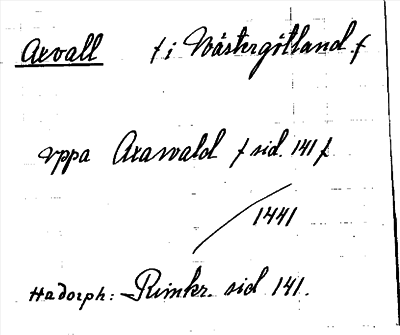 Axvall f i Wästergötland. f
vppa Axawald f sid. 141 f.
1441
Hadorph: Rimkr. sid 141.